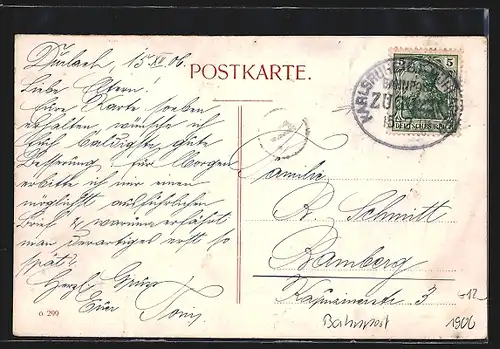 Durlach, 15 XI 06.
POSTKARTE.
Liebe Eltern!
Eure Karte soeben
erhalten, wünsche ich
Euch baldigste, gute
Besserung. Für Morgen
erbitte ich mir einen
möglichst ausführlichen
Brief &, warum erfährt
man derartiges erst so
spät?
Herzl. Gruss
Euer Tony
o. 299
5
DEUTSCHES REICH
BAHNPOST
ZUG
Familie
R. Schmitt
Bamberg
Kapuzinerstr. 3
Bahnpost
-12
1906